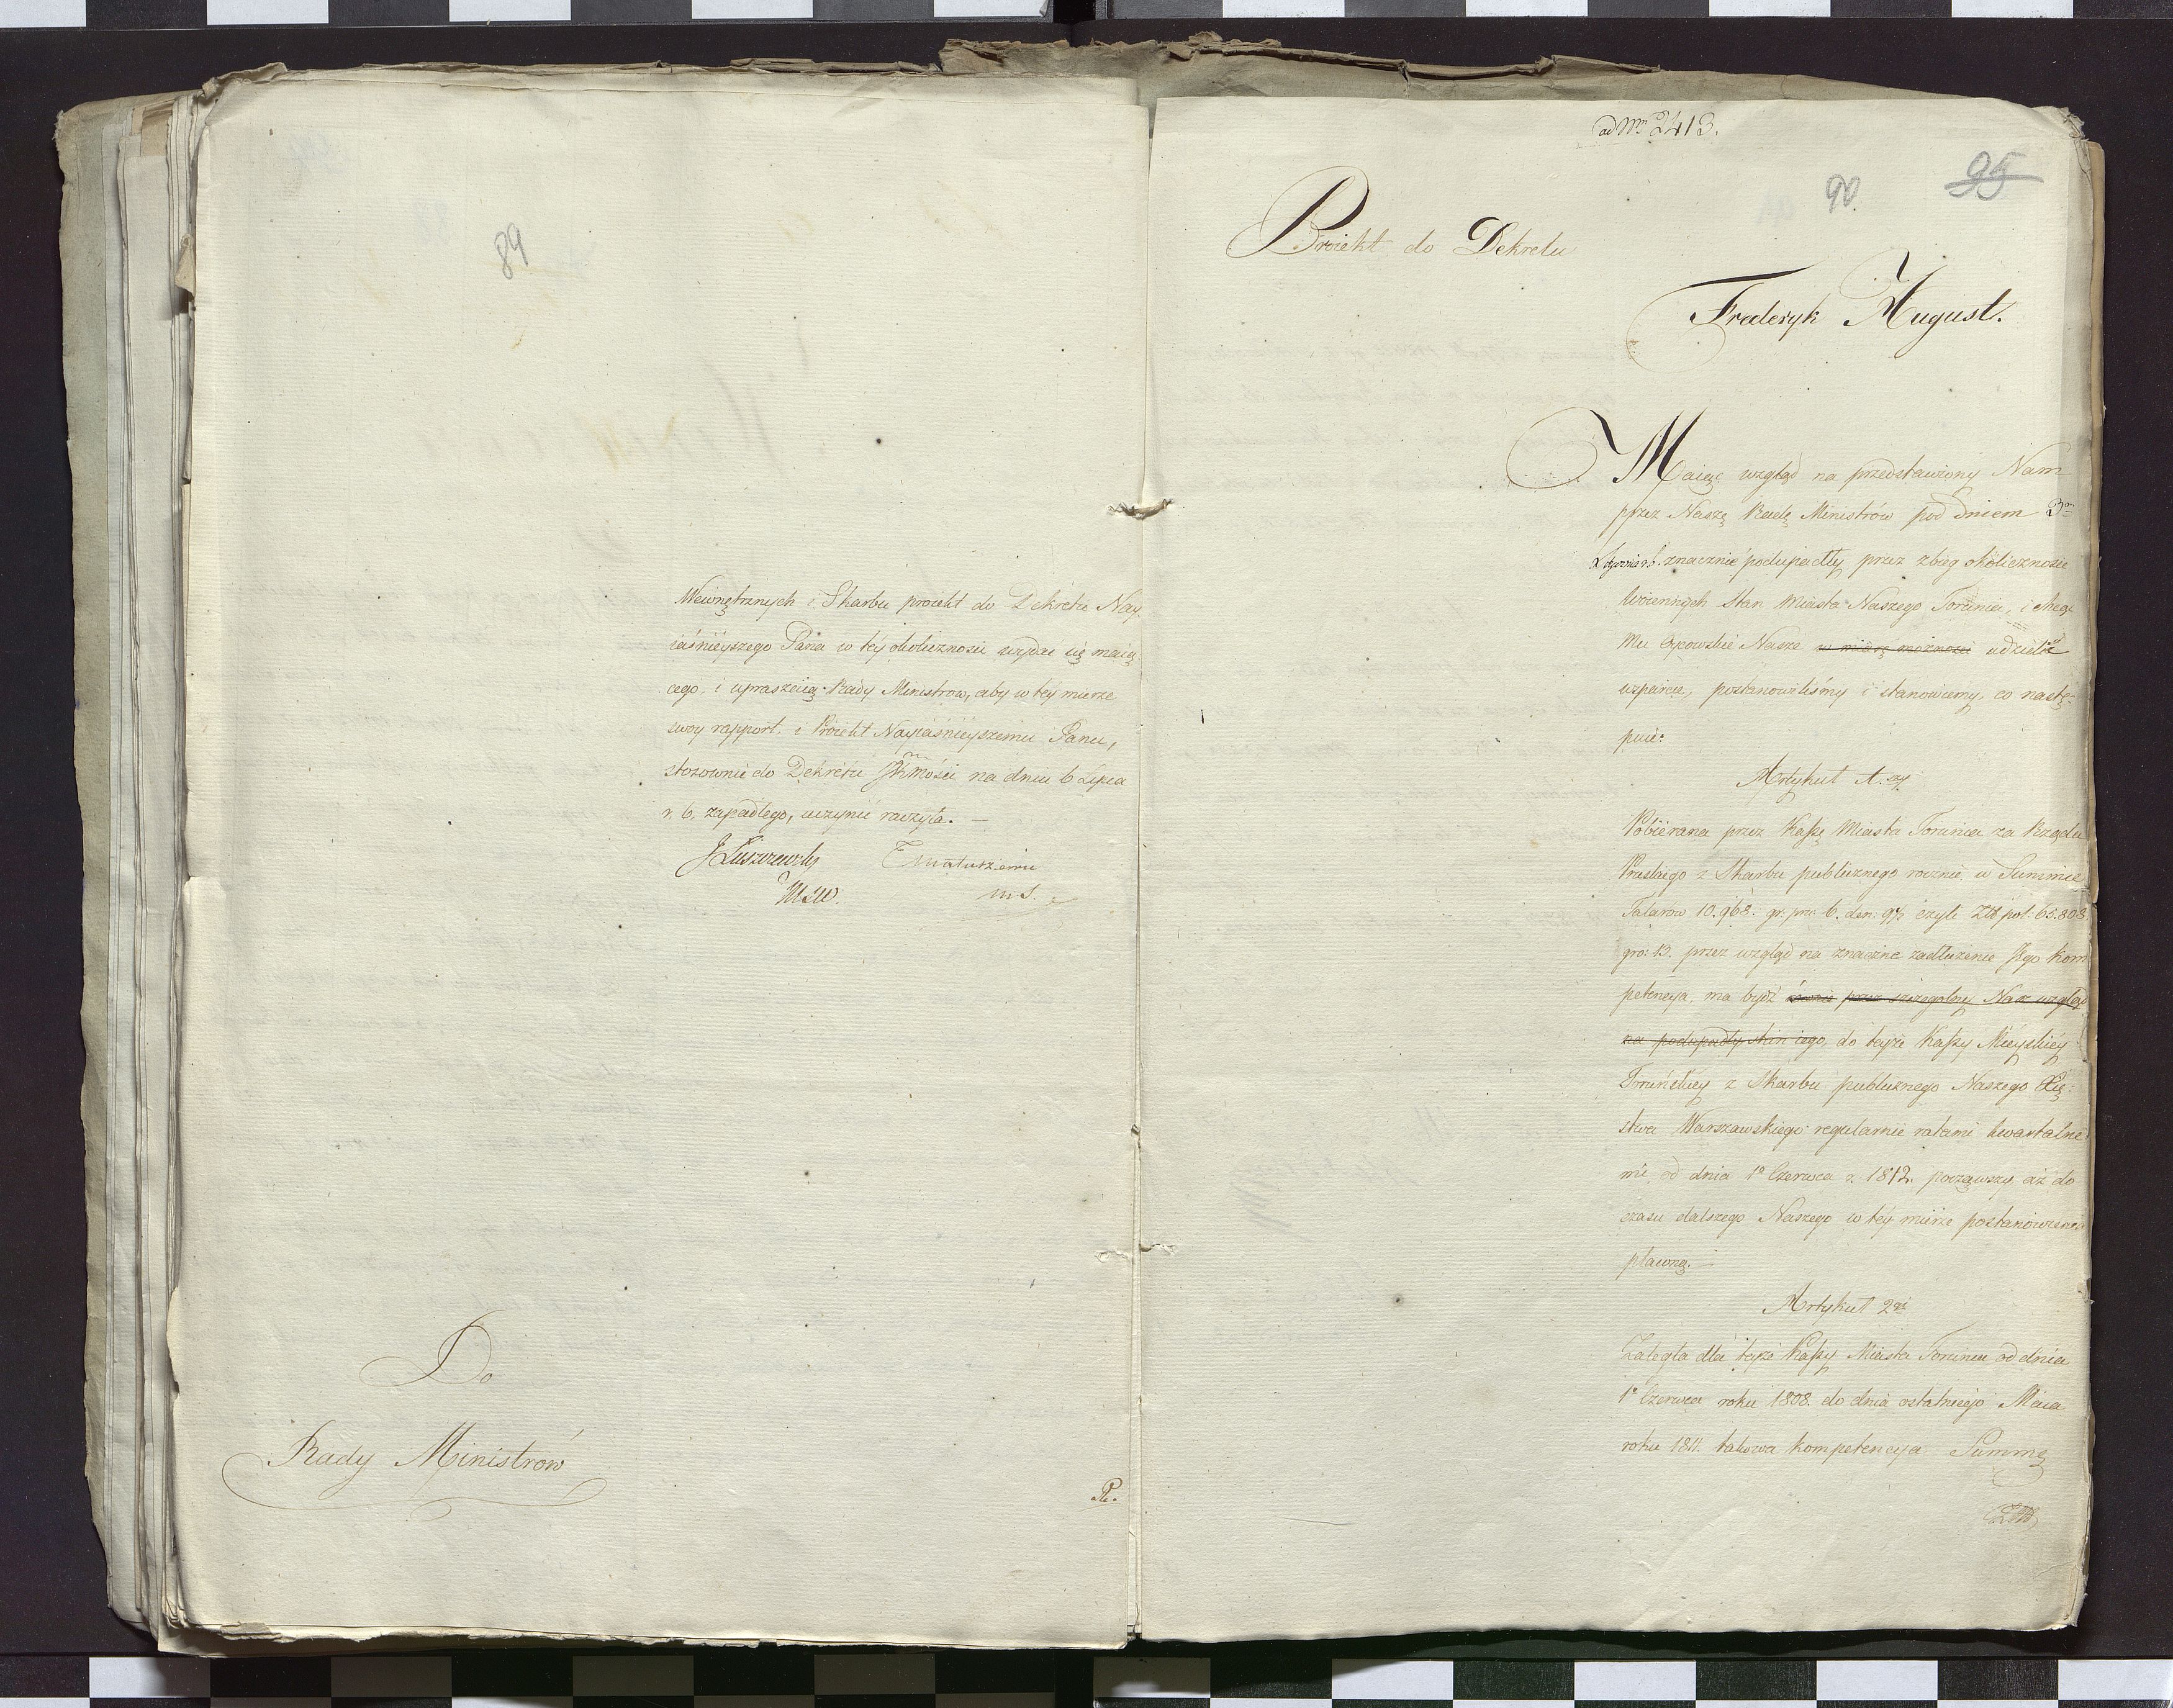 89
Wewnętrznych i Skarbu proiekt do Dekretu Nay
iaśnieyszego Pana w téy okoliczności wydać się maią
cego, i upraszaią Rady Ministrow, aby w téy mierze
swoy rapport i Proiekt Nayiaśnieyszemu Panu,
stosownie do Dekretu JKmości na dniu 6 Lipca
r. b. zapadłego, uczynić raczyła. —
J Łuszczewski Matuszewic
MSW. M. S.
Do
Rady Ministrów
R.
ad Nrm 2413.
90. 95
Proiekt do Dekretu
Frederyk August.
Maiąc wzgląd na przedstawiony Nam
przez Naszę Radę Ministrów pod dniem 3m
znacznie podupadły przez zbieg okoliczności
woiennych stan Miasta Naszego Torunia, i chcąc
Mu Oycowskie Nasze w miarę możności udzielić
wsparcie, postanowiliśmy i stanowiemy, co nastę-
puie:
Artykuł 1.szy
Pobiérana przez Kassę Miasta Torunia za Rządu
Pruskiego z Skarbu publicznego rocznie w Summie
Talarów 10.968. gr. pr. 6. den: 9⅗ czyli Złł pol: 65.808.
gro: 13. przez wzgląd na znaczne zadłużenie Jego kom
petencya, ma bydź przez szczegolny Nasz wzgląd
na podupadły stan iego, do teyże Kassy Mieyskiéy
Toruńskiey z Skarbu publicznego Naszego Xię-
stwa Warszawskiego regularnie ratami kwartalne
mi, od dnia 1o Czerwca r. 1812. począwszy aż do
czasu dalszego Naszego w téy mierze postanowienia
płaconą. —
Artykuł 2gi
Zaległa dla teyże Kassy Miasta Torunia od dnia
1o Czerwca roku 1808. do dnia ostatniego Maia
roku 1811. takowa kompetencya Summę
Złł